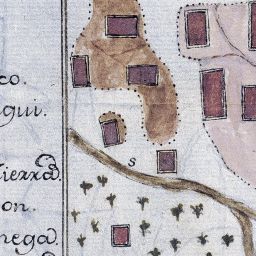 co
gui.
tierra
on.
nega.
s